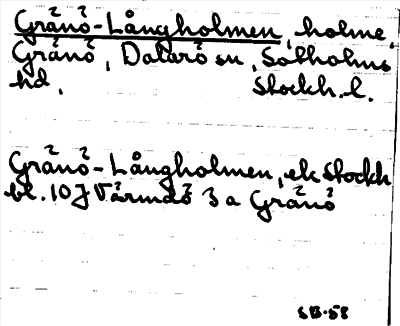 Gränö-Långholmen, holme,
Gränö, Dalarö sn, Sotholms
hd, Stockh. l.
Gränö-Långholmen, ek Stockh
bl. 10J Värmdö 3a Gränö
SB-58